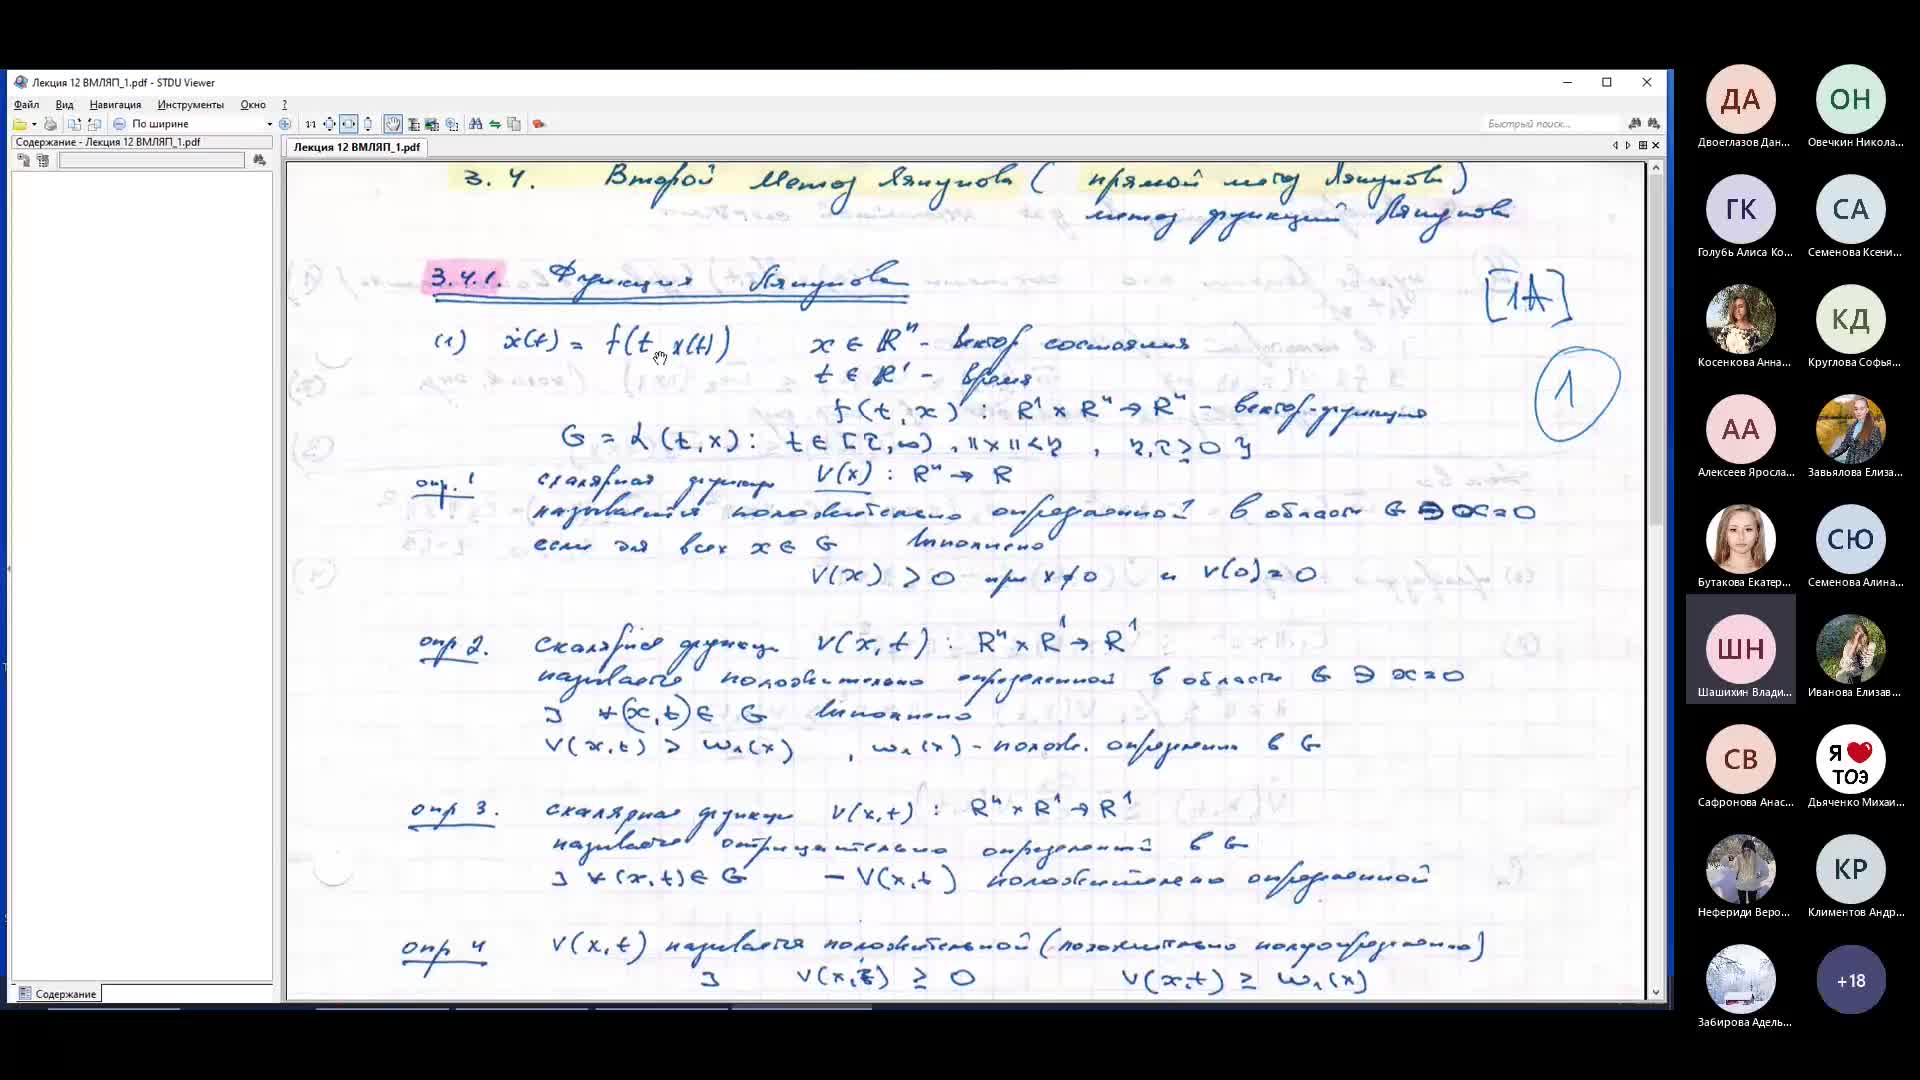 Лекция 12 ВМЛЯП_1.pdf - STDU Viewer
Файл Вид Навигация Инструменты Окно ?
По ширине
1:1
Быстрый поиск...
Содержание - Лекция 12 ВМЛЯП_1.pdf
Лекция 12 ВМЛЯП_1.pdf
3.4. Второй метод Ляпунова ( прямой метод Ляпунова)
метод функций Ляпунова
3.4.1. Функция Ляпунова
[1A]
(1) ẋ(t) = f(t, x(t)) x ∈ R^n - вектор состояния
t ∈ R^1 - время
1
f(t, x) : R^1 × R^n → R^n - вектор-функция
G = {(t,x): t ∈ [τ,∞), ||x|| < η, η,τ ≥ 0}
опр.1 скалярная функция V(x) : R^n → R
называется положительно определенной в области G ∋ x=0
если для всех x ∈ G выполнено
V(x) > 0 при x≠0 и V(0)=0
опр 2. скалярная функция V(x,t) : R^n × R^1 → R^1
называется положительно определенной в области G ∋ x=0
∃ ∀(x,t) ∈ G выполнено
V(x,t) > w₁(x) , w₁(x) - полож. определена в G
опр 3. скалярная функция V(x,t) : R^n × R^1 → R^1
называется отрицательно определенной в G
∃ ∀(x,t) ∈ G - V(x,t) положительно определенной
опр 4 V(x,t) называется положительной (положительно полуопределенной)
∃ V(x,t) ≥ 0 V(x,t) ≥ w₁(x)
Содержание
ДА
Двоеглазов Дан...
ОН
Овечкин Никола...
ГК
Голубь Алиса Ко...
СА
Семенова Ксени...
Косенкова Анна...
КД
Круглова Софья...
АА
Алексеев Яросла...
Завьялова Елиза...
Бутакова Екатер...
СЮ
Семенова Алина...
ШН
Шашихин Влади...
Иванова Елизав...
СВ
Сафронова Анас...
Я ❤
ТОЭ
Дьяченко Михаи...
Нефериди Веро...
КР
Климентов Андр...
Забирова Адель...
+18